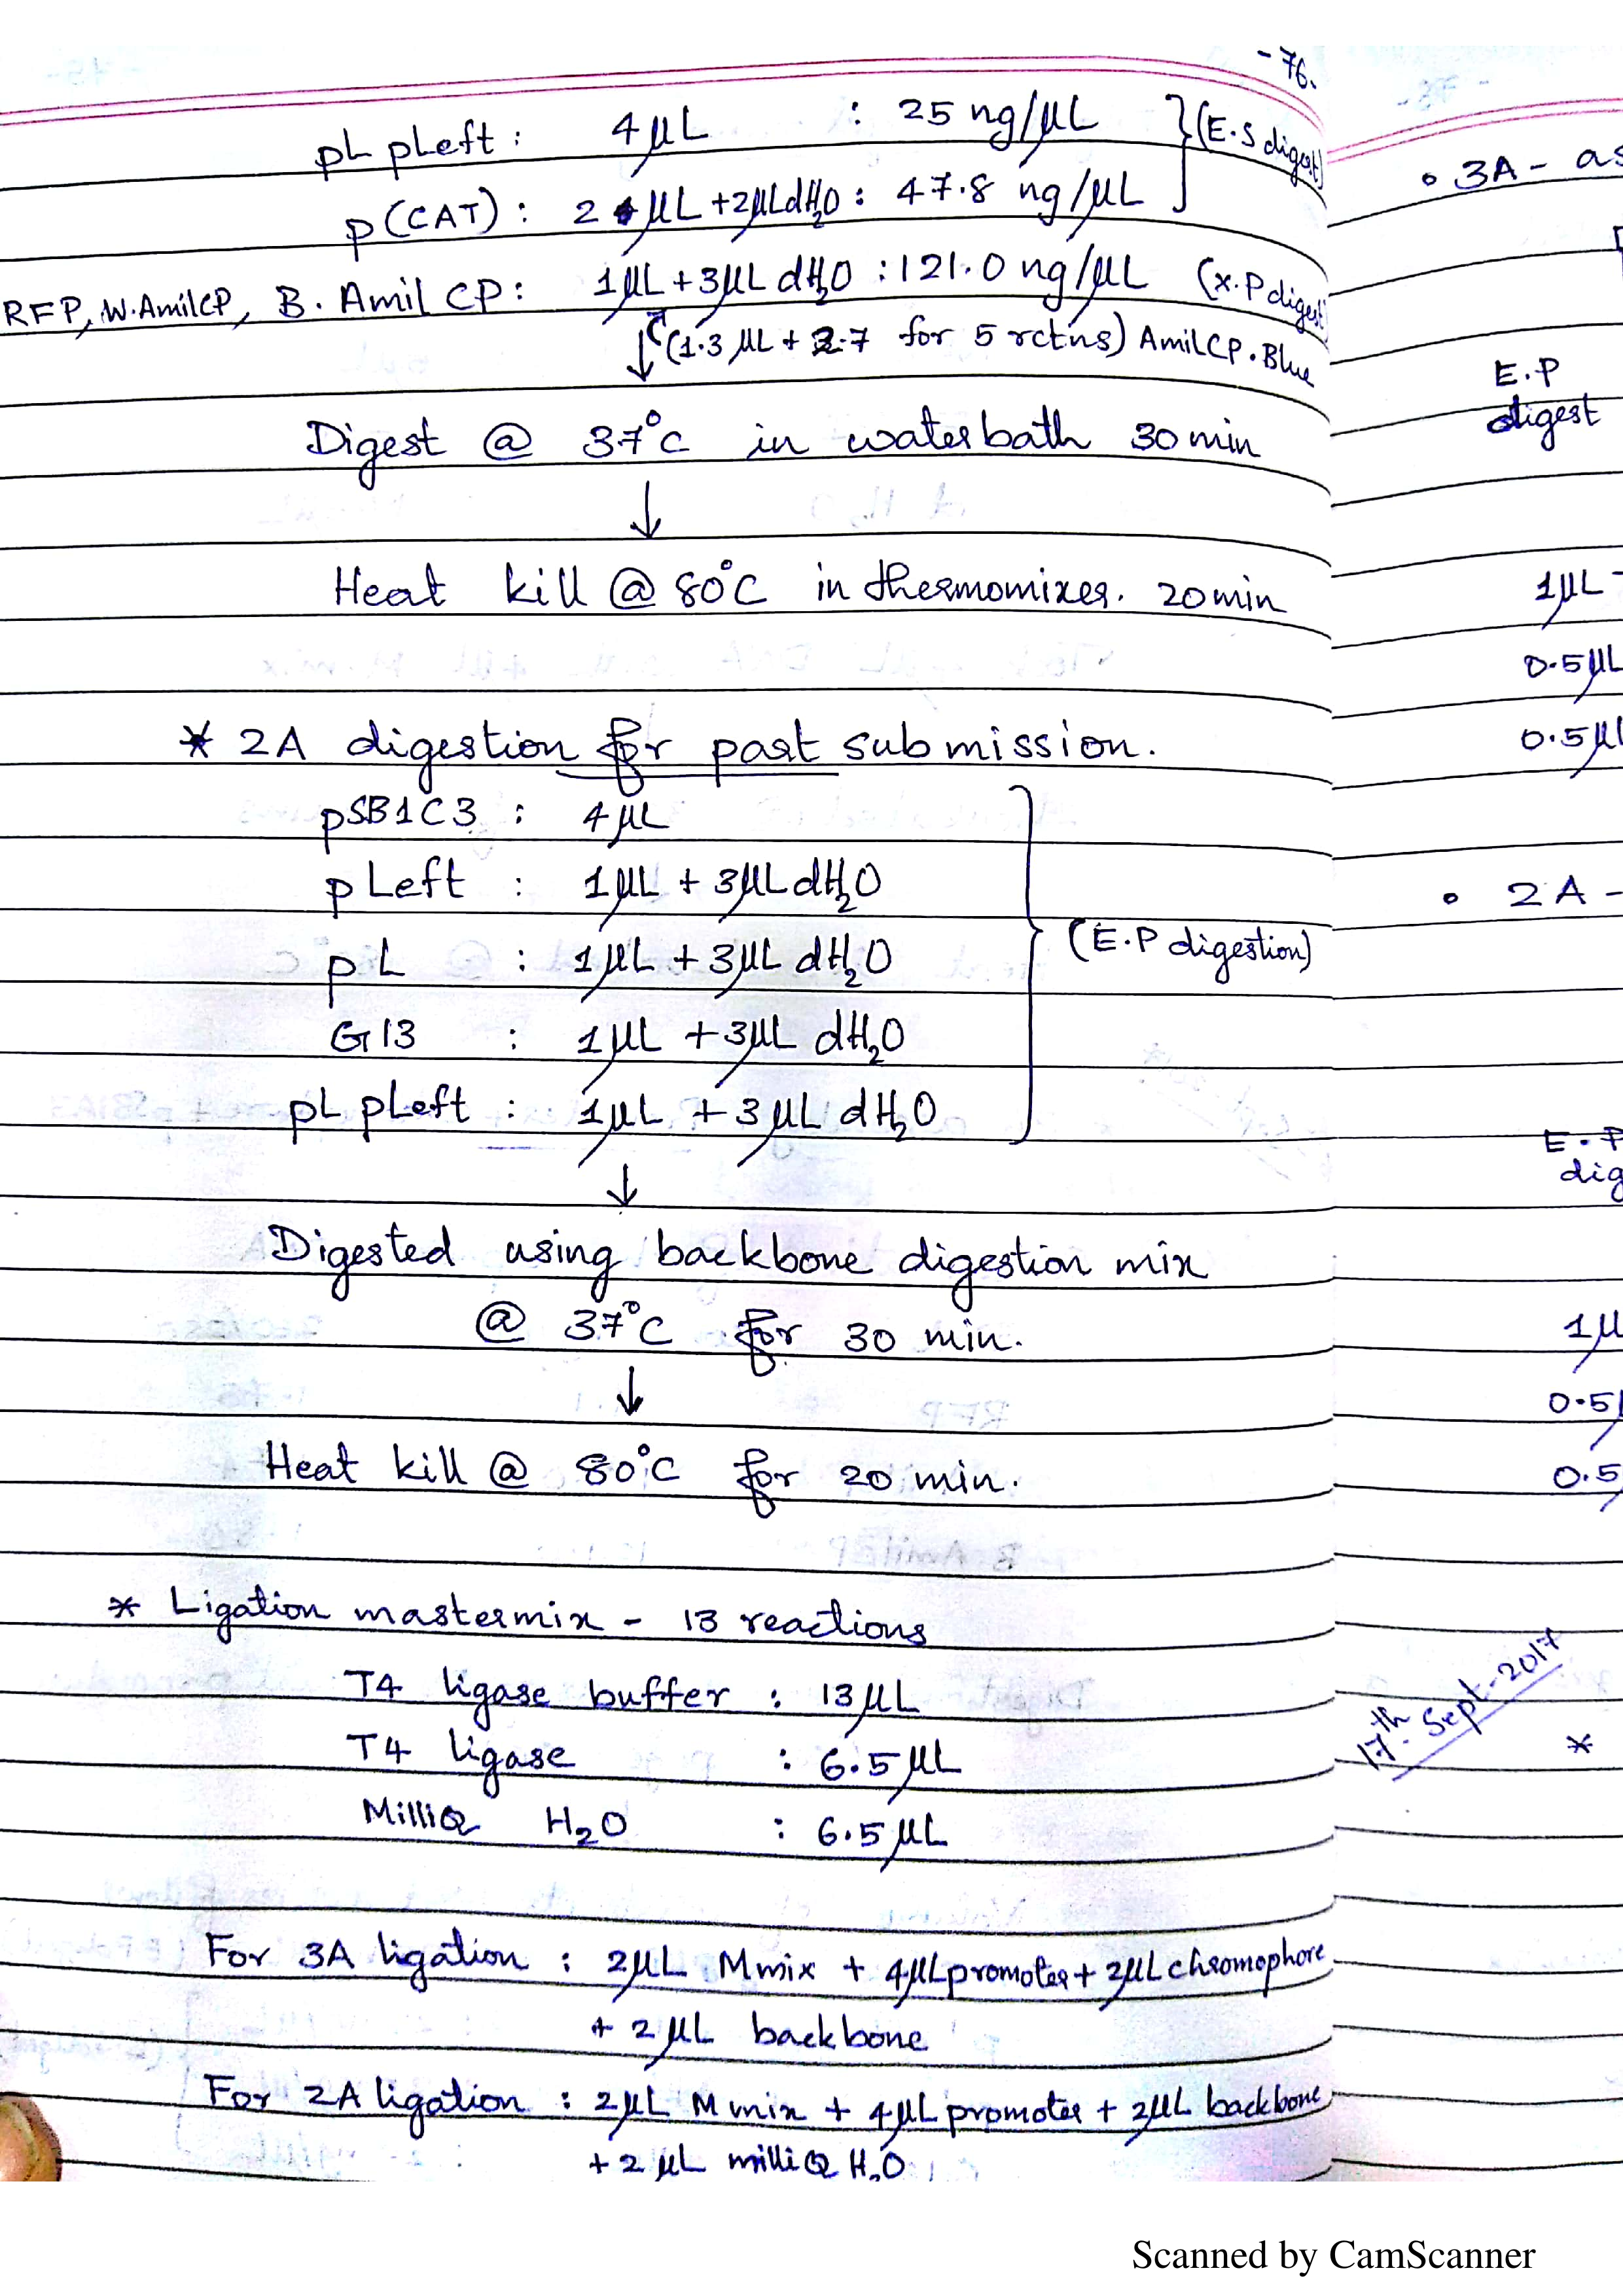 - 76.
pL pLeft : 4 µL : 25 ng/µL } (E.S digest)
p(CAT) : 2 µL + 2µL dH2O : 47.8 ng/µL
RFP, W.AmilCP, B. Amil CP : 1µL + 3µL dH2O : 121.0 ng/µL (X.P digest)
↓ (1.3 µL + 2.7 for 5 rctns) AmilCP.Blue
Digest @ 37°C in waterbath 30 min
↓
Heat kill @ 80°C in thermomixer. 20 min
* 2A digestion for part submission.
pSB1C3 : 4 µL
pLeft : 1 µL + 3µL dH2O
pL : 1µL + 3µL dH2O
(E.P digestion)
G13 : 1µL + 3µL dH2O
pL pLeft : 1µL + 3 µL dH2O
↓
Digested using backbone digestion mix
@ 37°C for 30 min.
↓
Heat kill @ 80°C for 20 min.
* Ligation mastermix - 13 reactions
T4 ligase buffer : 13 µL
T4 ligase : 6.5 µL
MilliQ H2O : 6.5 µL
For 3A ligation : 2µL M mix + 4µL promoter + 2µL chromophore
+ 2 µL backbone
For 2A ligation : 2µL M mix + 4µL promoter + 2µL backbone
+ 2 µL milliQ H2O
• 3A - as
E.P
digest
1µL
0.5µL
0.5µL
• 2A -
E.P
dig
1µ
0.5
0.5
17th Sept-2017
*
Scanned by CamScanner